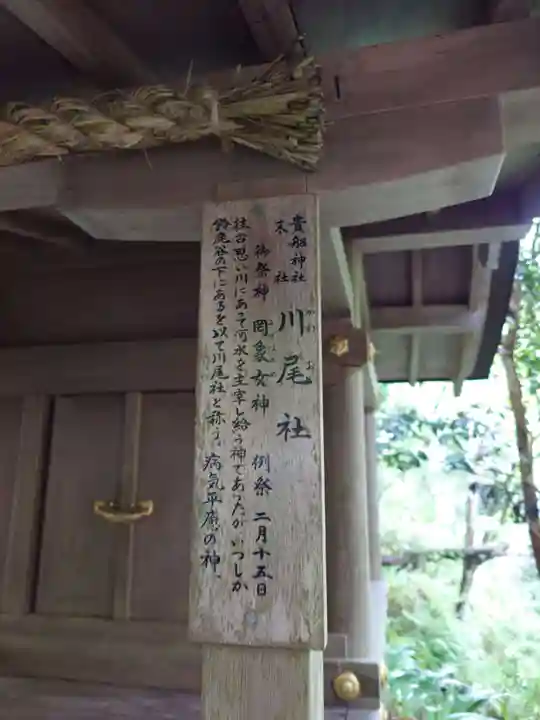 貴船神社
末社
川尾社
かわお
御祭神 罔象女神 例祭 二月十五日
往古思い川にあって河水を主宰し給う神であったがいつしか
鈴鹿谷の下にあるを以て川尾社と称う。病気平癒の神。